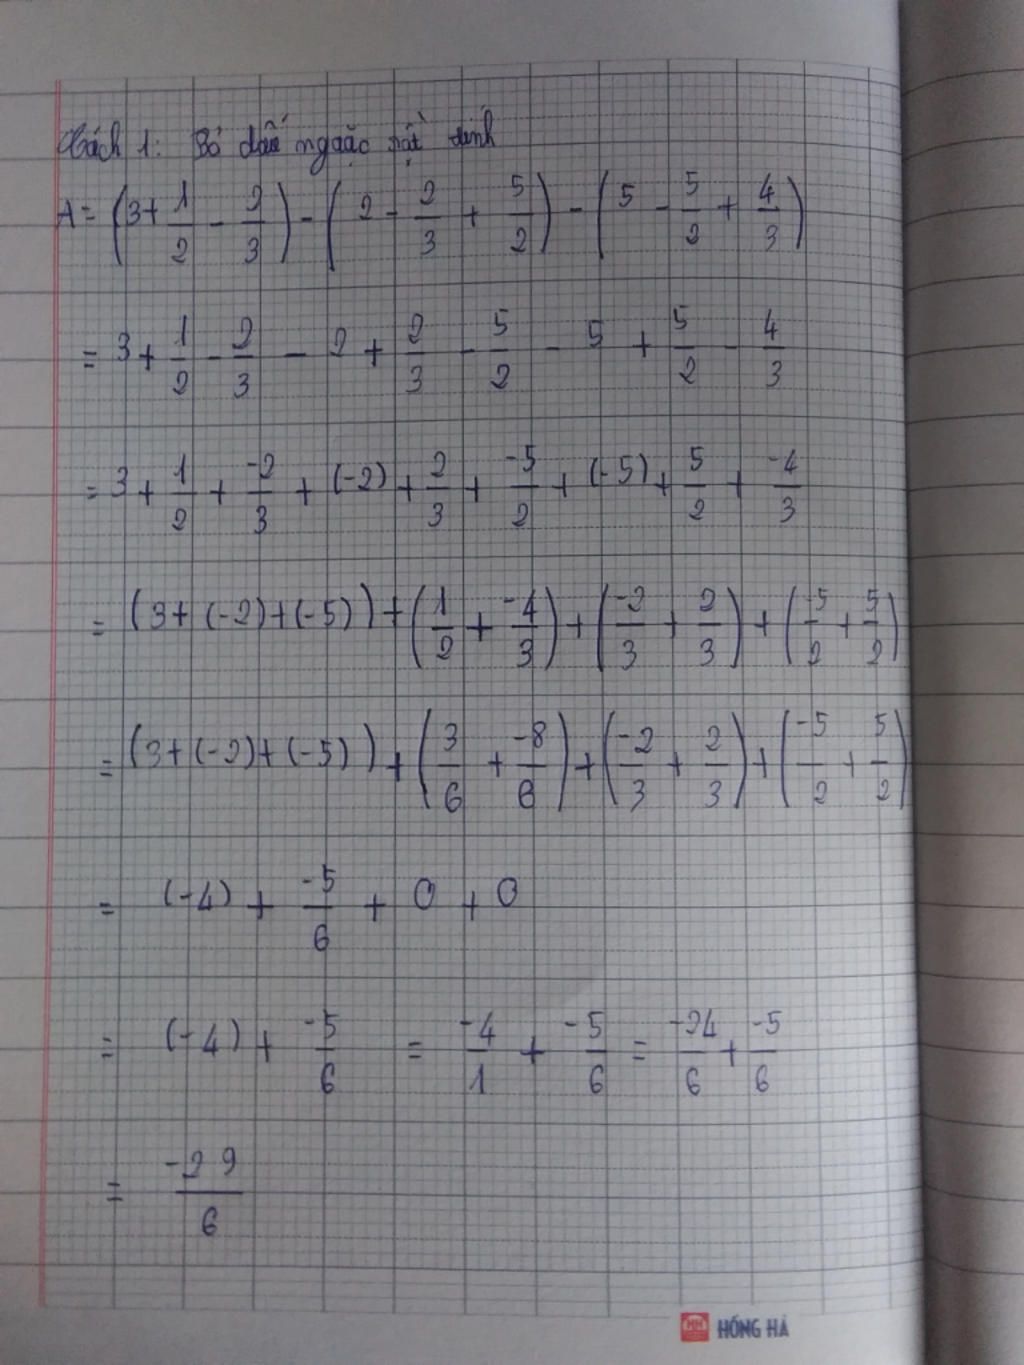 Cách 1: Bỏ dấu ngoặc rồi tính
A = (3 + 1/2 - 2/3) - (2 - 2/3 + 5/2) - (5 - 5/2 + 4/3)
= 3 + 1/2 - 2/3 - 2 + 2/3 - 5/2 - 5 + 5/2 - 4/3
= 3 + 1/2 + -2/3 + (-2) + 2/3 + -5/2 + (-5) + 5/2 + -4/3
= (3 + (-2) + (-5)) + (1/2 + -4/3) + (-2/3 + 2/3) + (-5/2 + 5/2)
= (3 + (-2) + (-5)) + (3/6 + -8/6) + (-2/3 + 2/3) + (-5/2 + 5/2)
= (-4) + -5/6 + 0 + 0
= (-4) + -5/6 = -4/1 + -5/6 = -24/6 + -5/6
= -29/6
HH HỒNG HÀ